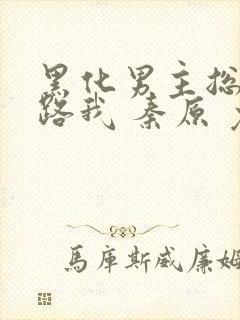 黑化男主总
路我 秦原
馬庫斯威廉姆